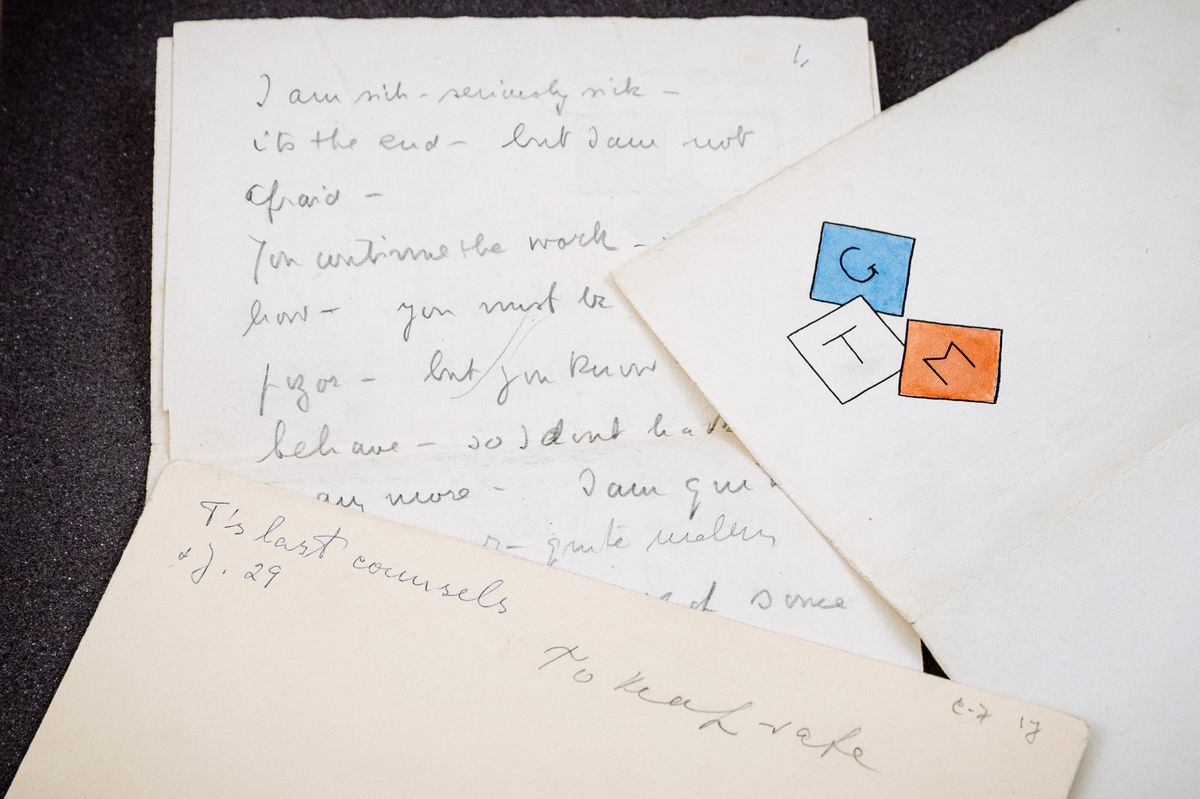 I am sick - seriously sick -
its the end - but I am not
afraid -
You continue the work -
how - you must be
but you know
behave - so I dont have
any more - I am
quite
of since
G
T
M
T's last counsels
29
To keep safe